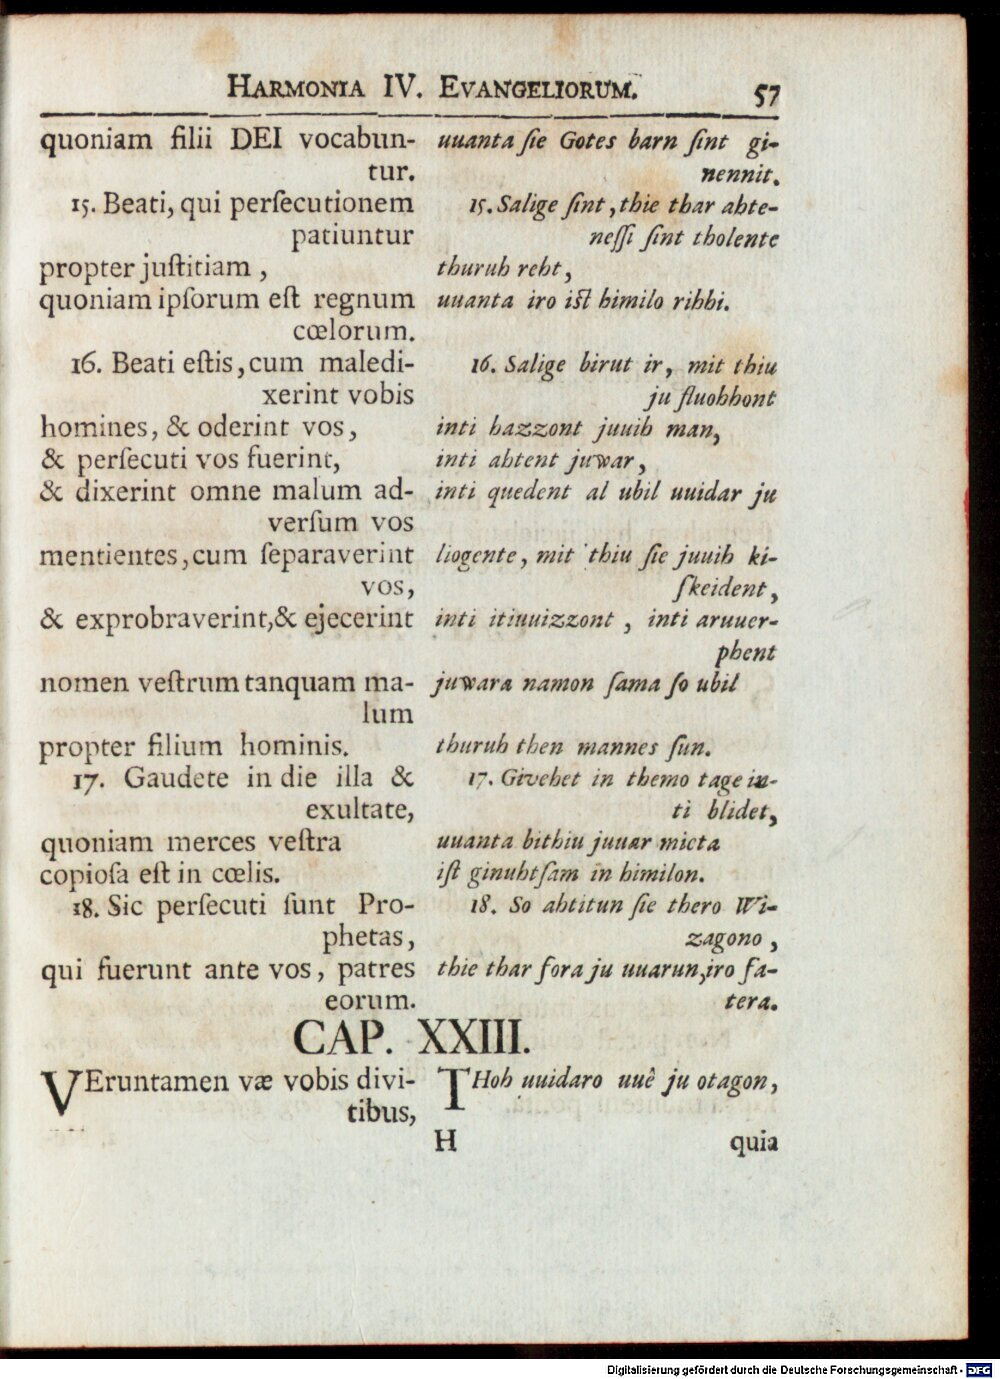 HARMONIA IV. EVANGELIORUM. 57
quoniam filii DEI vocabun-
tur.
15. Beati, qui perſecutionem
patiuntur
propter juſtitiam ,
quoniam ipſorum eſt regnum
cœlorum.
16. Beati eſtis, cum maledi-
xerint vobis
homines, & oderint vos,
& perſecuti vos fuerint,
& dixerint omne malum ad-
verſum vos
mentientes, cum ſeparaverint
vos,
& exprobraverint,& ejecerint
nomen veſtrum tanquam ma-
lum
propter filium hominis.
17. Gaudete in die illa &
exultate,
quoniam merces veſtra
copioſa eſt in cœlis.
18. Sic perſecuti ſunt Pro-
phetas,
qui fuerunt ante vos, patres
eorum.
uuanta ſie Gotes barn ſint gi-
nennit.
15. Salige ſint, thie thar ahte-
neſſi ſint tholente
thuruh reht,
uuanta iro iſt himilo rihhi.
16. Salige birut ir, mit thiu
ju fluohhont
inti hazzont juuih man,
inti ahtent juwar,
inti quedent al ubil uuidar ju
liogente, mit thiu ſie juuih ki-
ſkeident,
inti itiuuizzont , inti aruuer-
phent
juwara namon ſama ſo ubil
thuruh then mannes ſun.
17. Givehet in themo tage in-
ti blidet,
uuanta bithiu juuar micta
iſt ginuhtſam in himilon.
18. So ahtitun ſie thero Wi-
zagono ,
thie thar fora ju uuarun,iro fa-
tera.
CAP. XXIII.
VEruntamen væ vobis divi-
tibus,
THoh uuidaro uuê ju otagon,
H quia
Digitalisierung gefördert durch die Deutsche Forschungsgemeinschaft - DFG